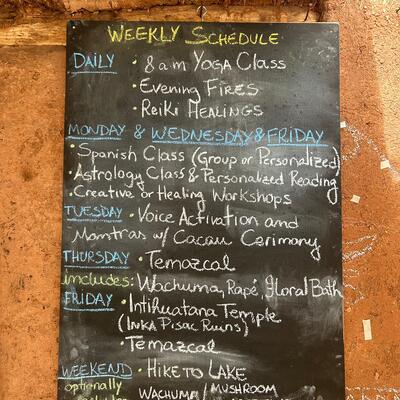 WEEKLY SCHEDULE
DAILY · 8 am YOGA CLASS
· EVENING FIRES
· REIKI HEALINGS
MONDAY & WEDNESDAY & FRIDAY
· SPANISH CLASS (GROUP OR PERSONALIZED)
· ASTROLOGY CLASS & PERSONALIZED READING
· CREATIVE OR HEALING WORKSHOPS
TUESDAY · VOICE ACTIVATION AND
MANTRAS W/ CACAU CERIMONY
THURSDAY · TEMAZCAL
includes: WACHUMA, RAPÉ, FLORAL BATH
FRIDAY · INTIHUATANA TEMPLE
(INKA PISAC RUINS)
· TEMAZCAL
WEEKEND · HIKE TO LAKE
optionally WACHUMA / MUSHROOM